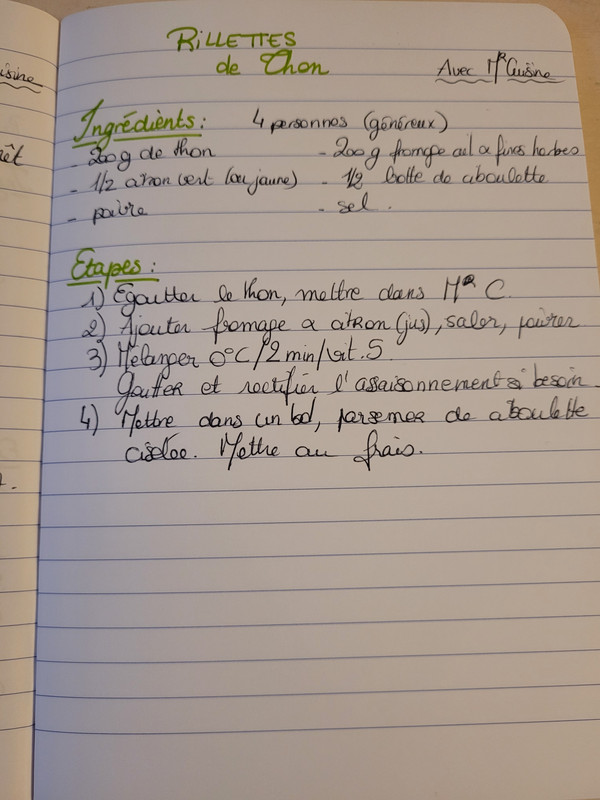 RILLETTES
de Thon
Avec Mr Cuisine
isine
Ingrédients : 4 personnes (généreux)
êt
- 200g de thon - 200g fromage ail & fines herbes
- 1/2 citron vert (ou jaune) - 1/2 botte de ciboulette
- poivre - sel.
Etapes :
1) Egoutter le thon, mettre dans Mr C.
2) Ajouter fromage & citron (jus), saler, poivrer
3) Mélanger 0°C/2min/vit.5
Goutter et rectifier l'assaisonnement si besoin.
4) Mettre dans un bol, parsemer de ciboulette
ciselée. Mettre au frais.